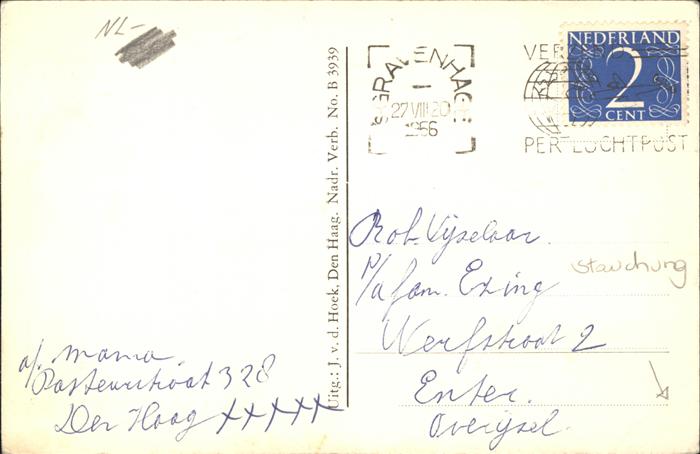 NL-
'S GRAVENHAGE
I
27 VIII 20
1956
VER
PER LUCHTPOST
NEDERLAND
2
CENT
Uitg.: J. v. d. Hoek, Den Haag. Nadr. Verb. No. B 3939
Rob. Vijselaar.
P/a fam. Exing
Werfstraat 2
Enter.
Overijsel.
stauchung
a/. mama.
Pasteurstraat 328
Den Haag xxxxx